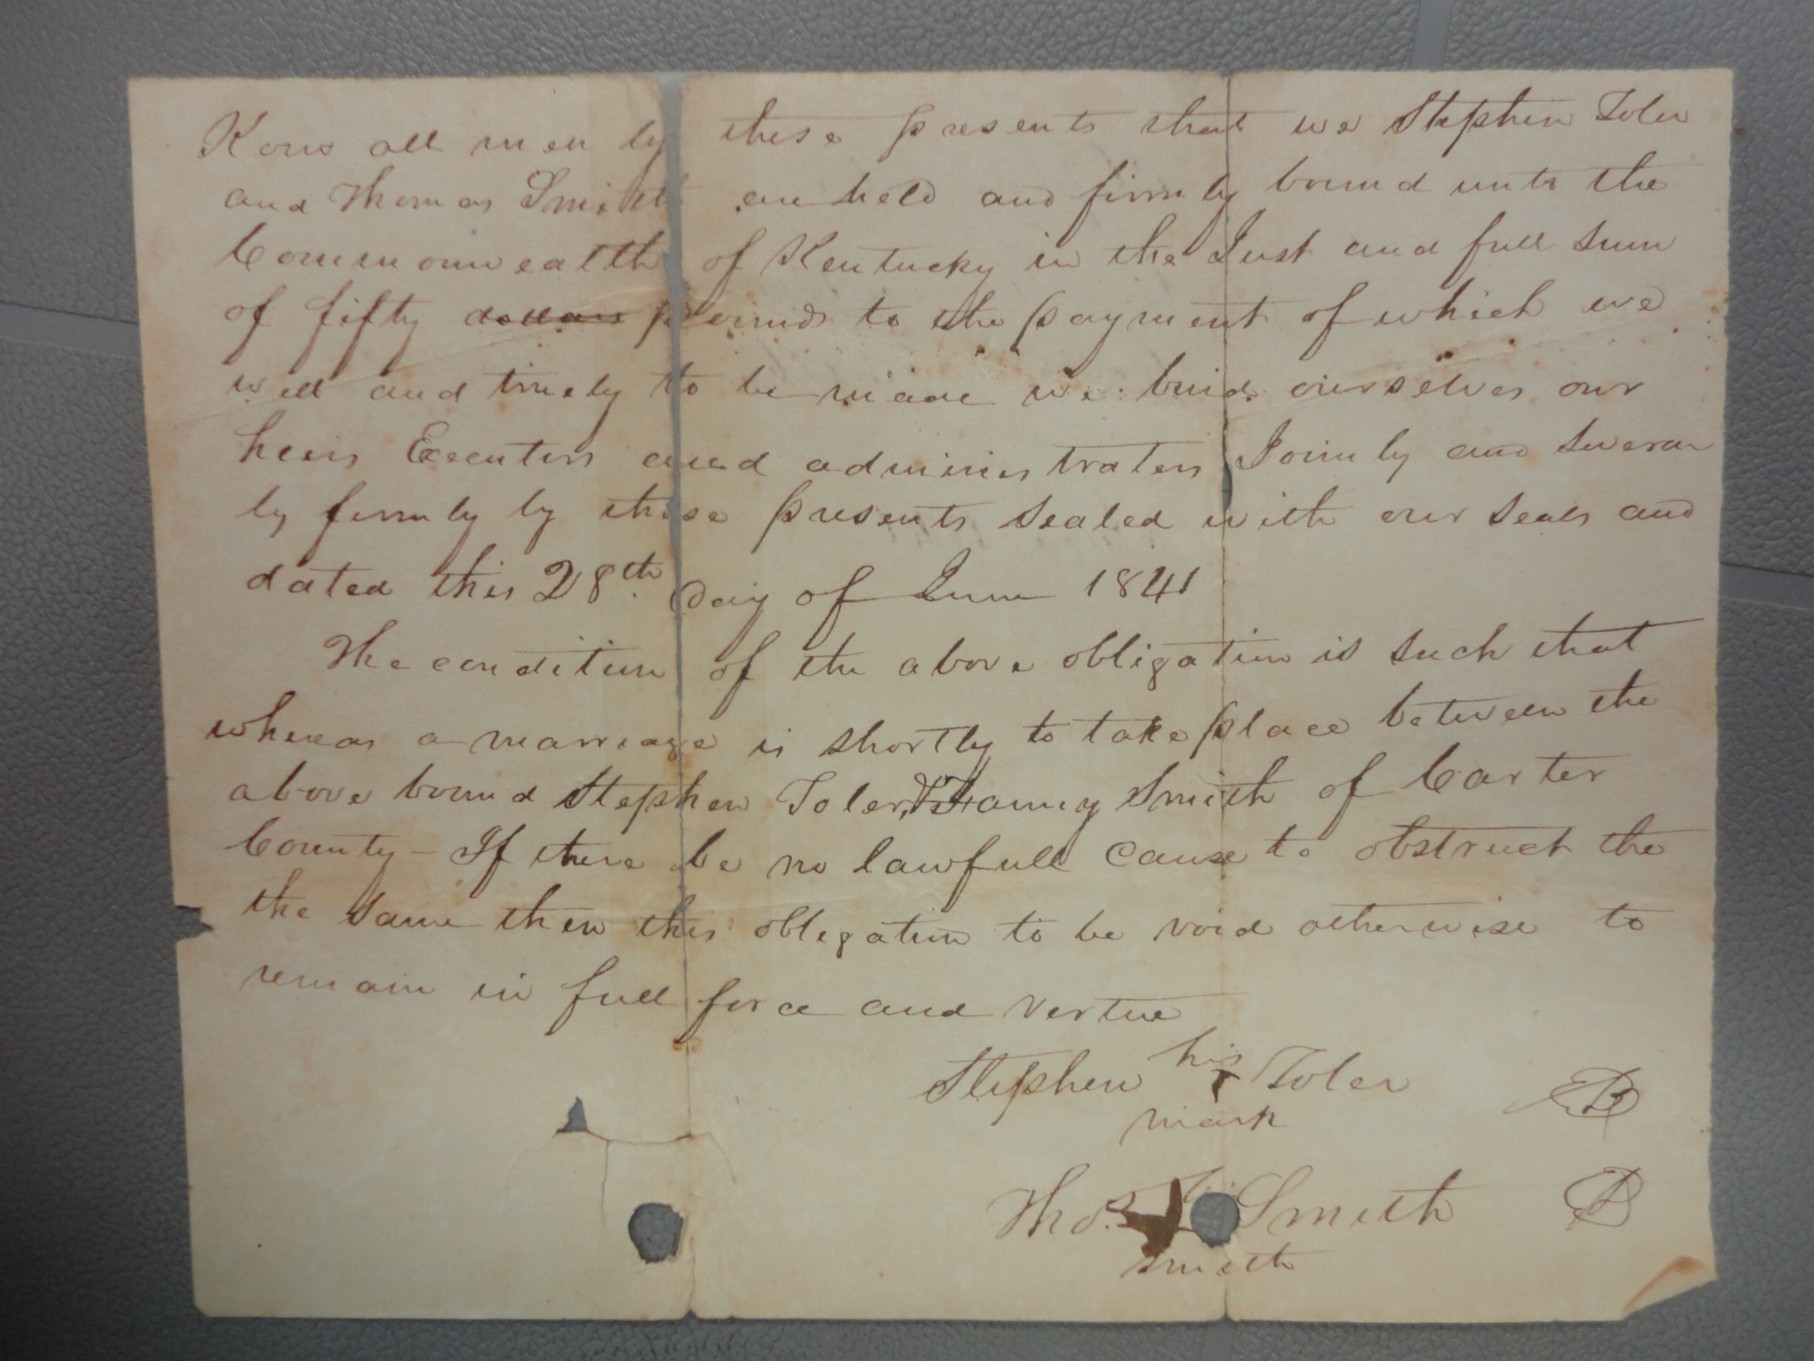 Kow all men by these presents that we Stephen Toler
and Thomas Smith are held and firmly bound unto the
Commonwealth of Kentucky in the Just and full Sum
of fifty dollars pounds to the payment of which we
well and truely to be made we bind ourselves our
heirs Executors and administrators Jointly and Severa
ly firmly by these presents Sealed with our seals and
dated this 28th day of June 1841
The condition of the above obligation is such that
whereas a marriage is shortly to take place between the
above bound Stephen Toler & Fanny Smith of Carter
County - If there be no lawfull cause to obstruct the
the same then this obligation to be void otherwise to
remain in full force and vertue
Stephen his Toler
mark
Thos. Smith
smith